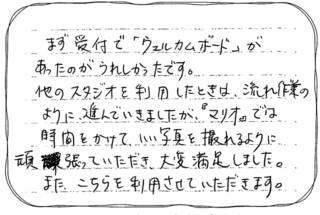 まず受付で「ウェルカムボード」が
あったのがうれしかったです。
他のスタジオを利用したときは、流れ作業の
ように進んでいきましたが、『マリオ』では
時間をかけて、いい写真を撮れるように
頑張っていただき、大変満足しました。
また、こちらを利用させていただきます。